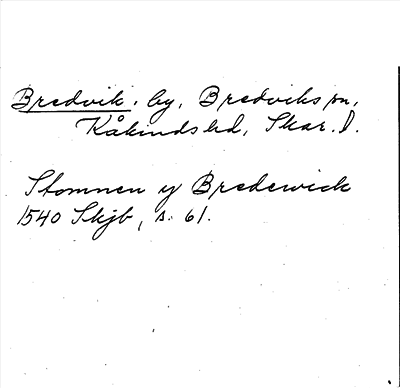 Bredvik, by, Bredviks sn,
Kåkinds hd, Skar. l.
Stomnen y Brederwick
1540 Skjb, s. 61.